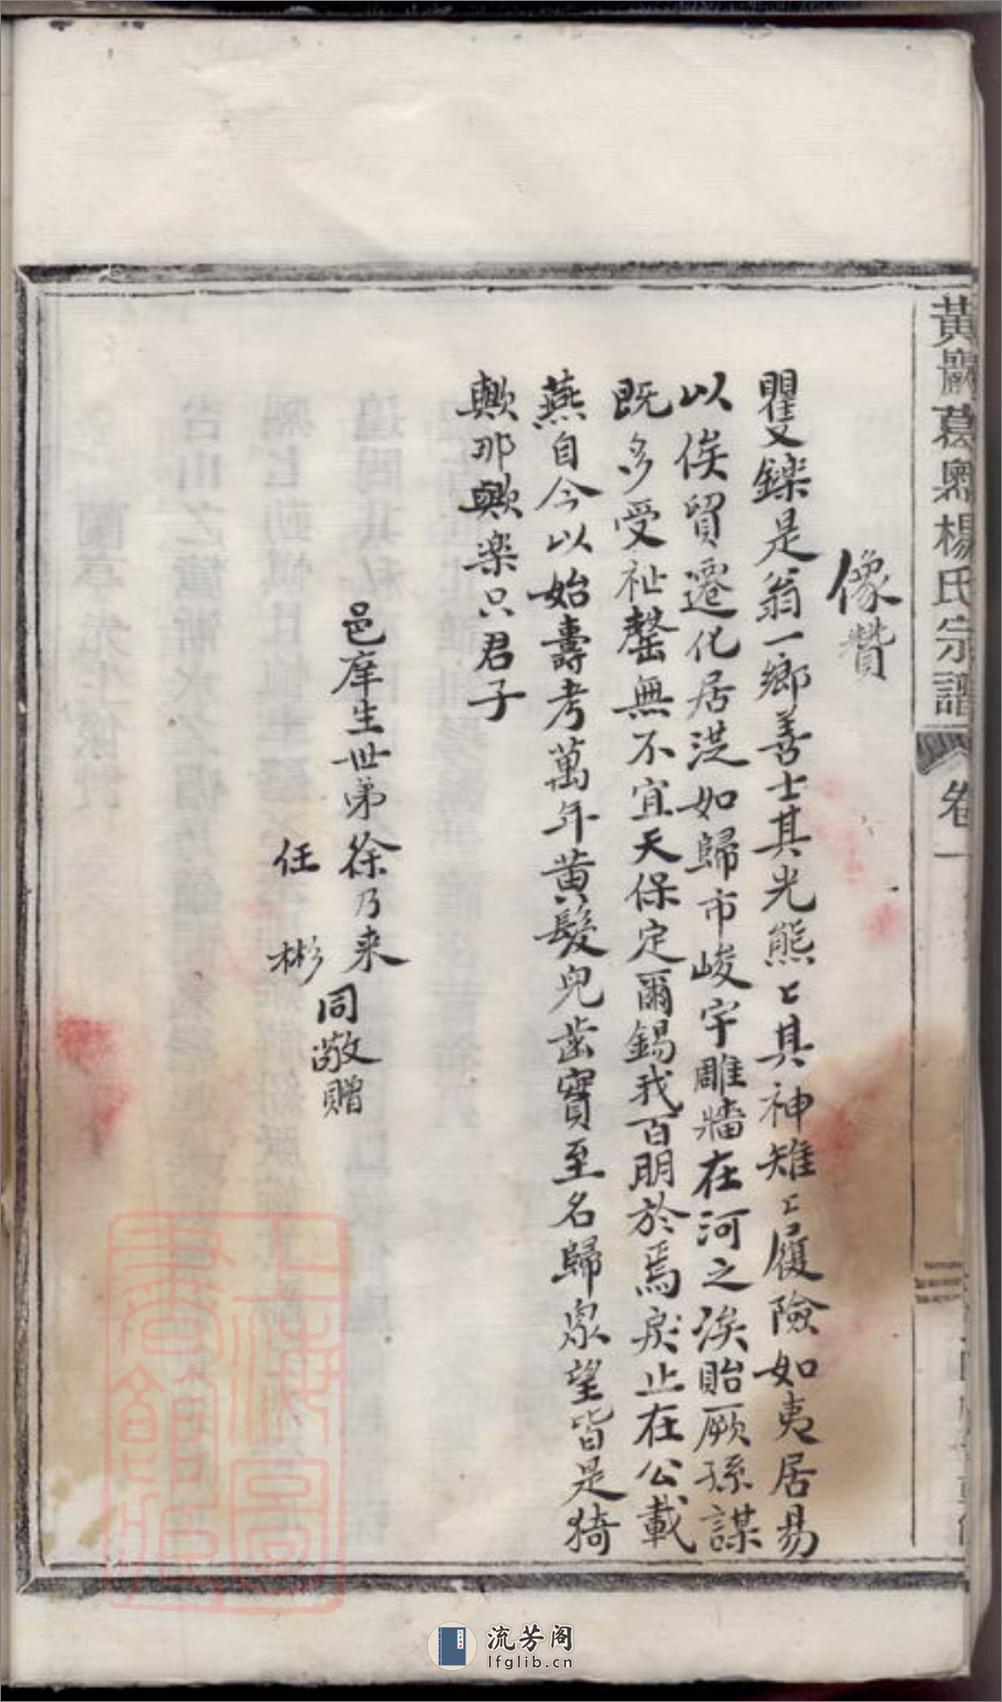 黃巖葛奧楊氏宗譜 卷一
像贊
矍鑠是翁一鄉善士其光熊〻其神雉〻履險如夷居易
以俟貿遷化居湜如歸市峻宇雕牆在河之涘貽厥孫謀
既多受祉罄無不宜天保定爾錫我百朋於焉戾止在公載
燕自今以始壽考萬年黃髮兒齒實至名歸眾望皆是猗
歟那歟樂只君子
邑庠生世弟徐乃来
任彬
同敬贈
上海圖書館藏
流芳阁
lfglib.cn